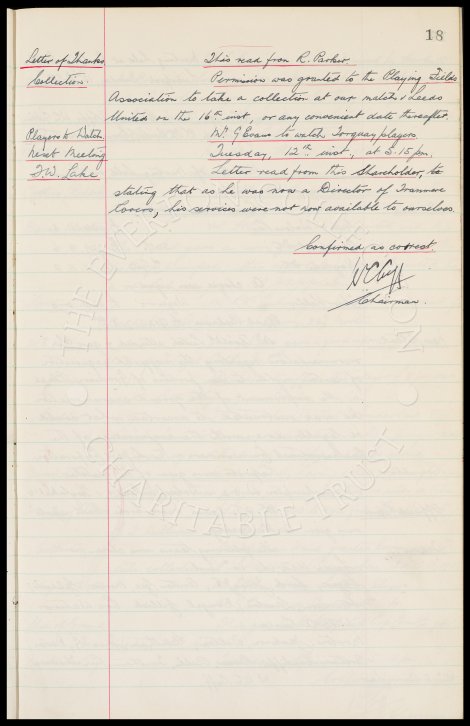 18
Letter of Thanks. This read from R. Parker.
Collection. Permission was granted to the Playing Fields
Association to take a collection at our match v Leeds
United on the 16th inst, or any convenient date thereafter.
Players to Watch. Mr G Evans to watch Torquay players.
Next Meeting Tuesday, 12th inst., at 5.15 pm.
F.W. Lake Letter read from this Shareholder,
stating that as he was now a Director of Tranmere
Rovers, his services were not now available to ourselves.
Confirmed as correct.
Chairman.
THE EVERTON COLLECTION
CHARITABLE TRUST